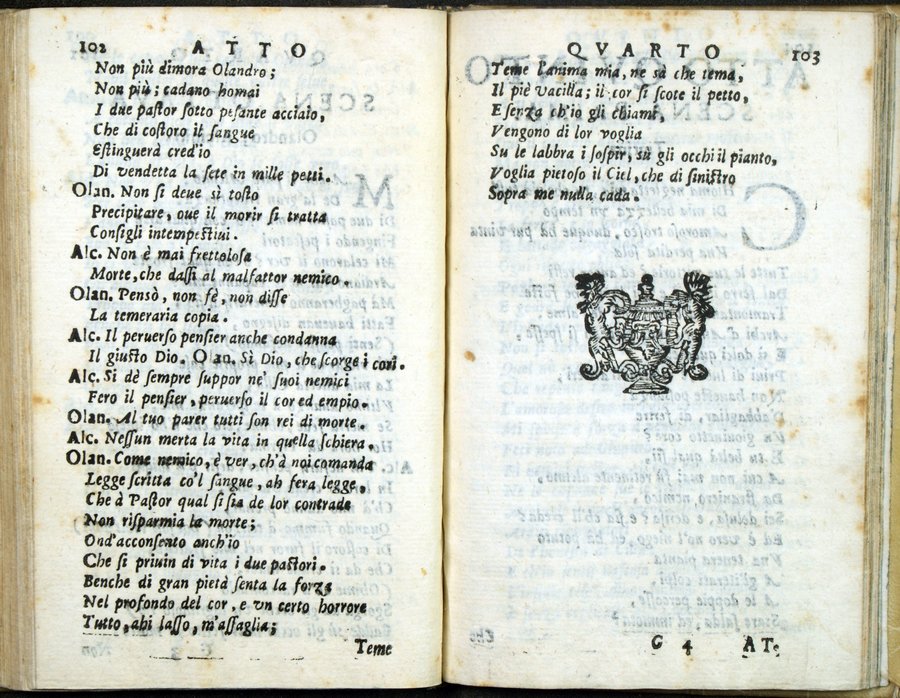 102 ATTO
Non più dimora Olandro;
Non più; cadano homai
I due pastor sotto pesante acciaio,
Che di costoro il sangue
Estinguerà cred'io
Di vendetta la sete in mille petti.
Olan. Non si deue sì tosto
Precipitare, oue il morir si tratta
Consigli intempestiui.
Alc. Non è mai frettolosa
Morte, che dassi al malfattor nemico.
Olan. Pensò, non fè, non disse
La temeraria copia.
Alc. Il peruerso pensier anche condanna
Il giusto Dio. Olan. Sì Dio, che scorge i cori.
Alc. Si dè sempre suppor ne' suoi nemici
Fero il pensier, peruerso il cor ed empio.
Olan. Al tuo parer tutti son rei di morte.
Alc. Nessun merta la vita in quella schiera.
Olan. Come nemico, è ver, ch'à noi comanda
Legge scritta co'l sangue, ah fera legge,
Che à Pastor qual si sia de lor contrade
Non risparmia la morte;
Ond'acconsento anch'io
Che si priuin di vita i due pastori.
Benche di gran pietà senta la forza
Nel profondo del cor, e vn certo horrore
Tutto, ahi lasso, m'assaglia;
Teme
QVARTO 103
Teme l'anima mia, ne sà che tema,
Il piè vacilla; il cor si scote il petto,
E senza ch'io gli chiami,
Vengono di lor voglia
Su le labbra i sospir, sù gli occhi il pianto,
Voglia pietoso il Ciel, che di sinistro
Sopra me nulla cada.
G 4 AT-